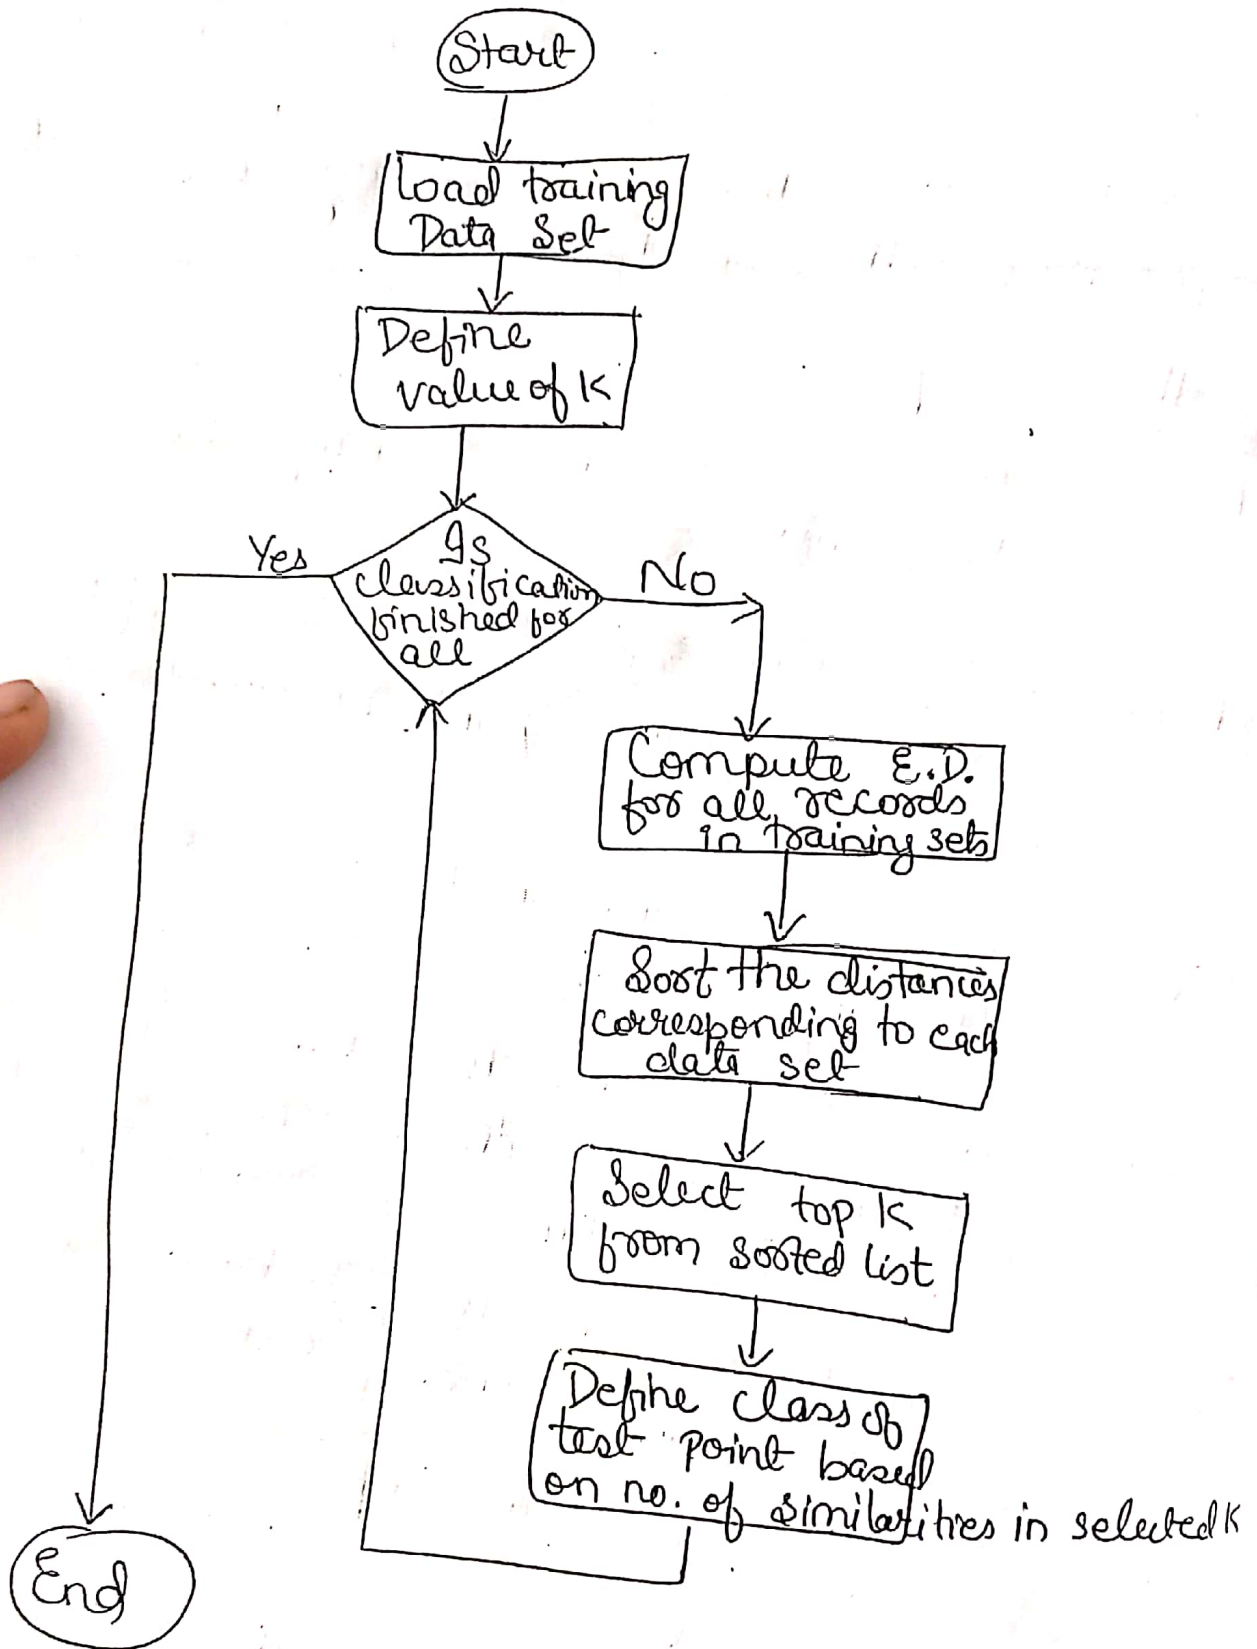 Start
Load training
Data Set
Define
value of K
Is
classification
finished for
all
Yes
No
Compute E.D.
for all records
in training sets
Sort the distances
corresponding to each
data set
Select top K
from sorted list
Define class of
test point based
on no. of similarities in selected K
End